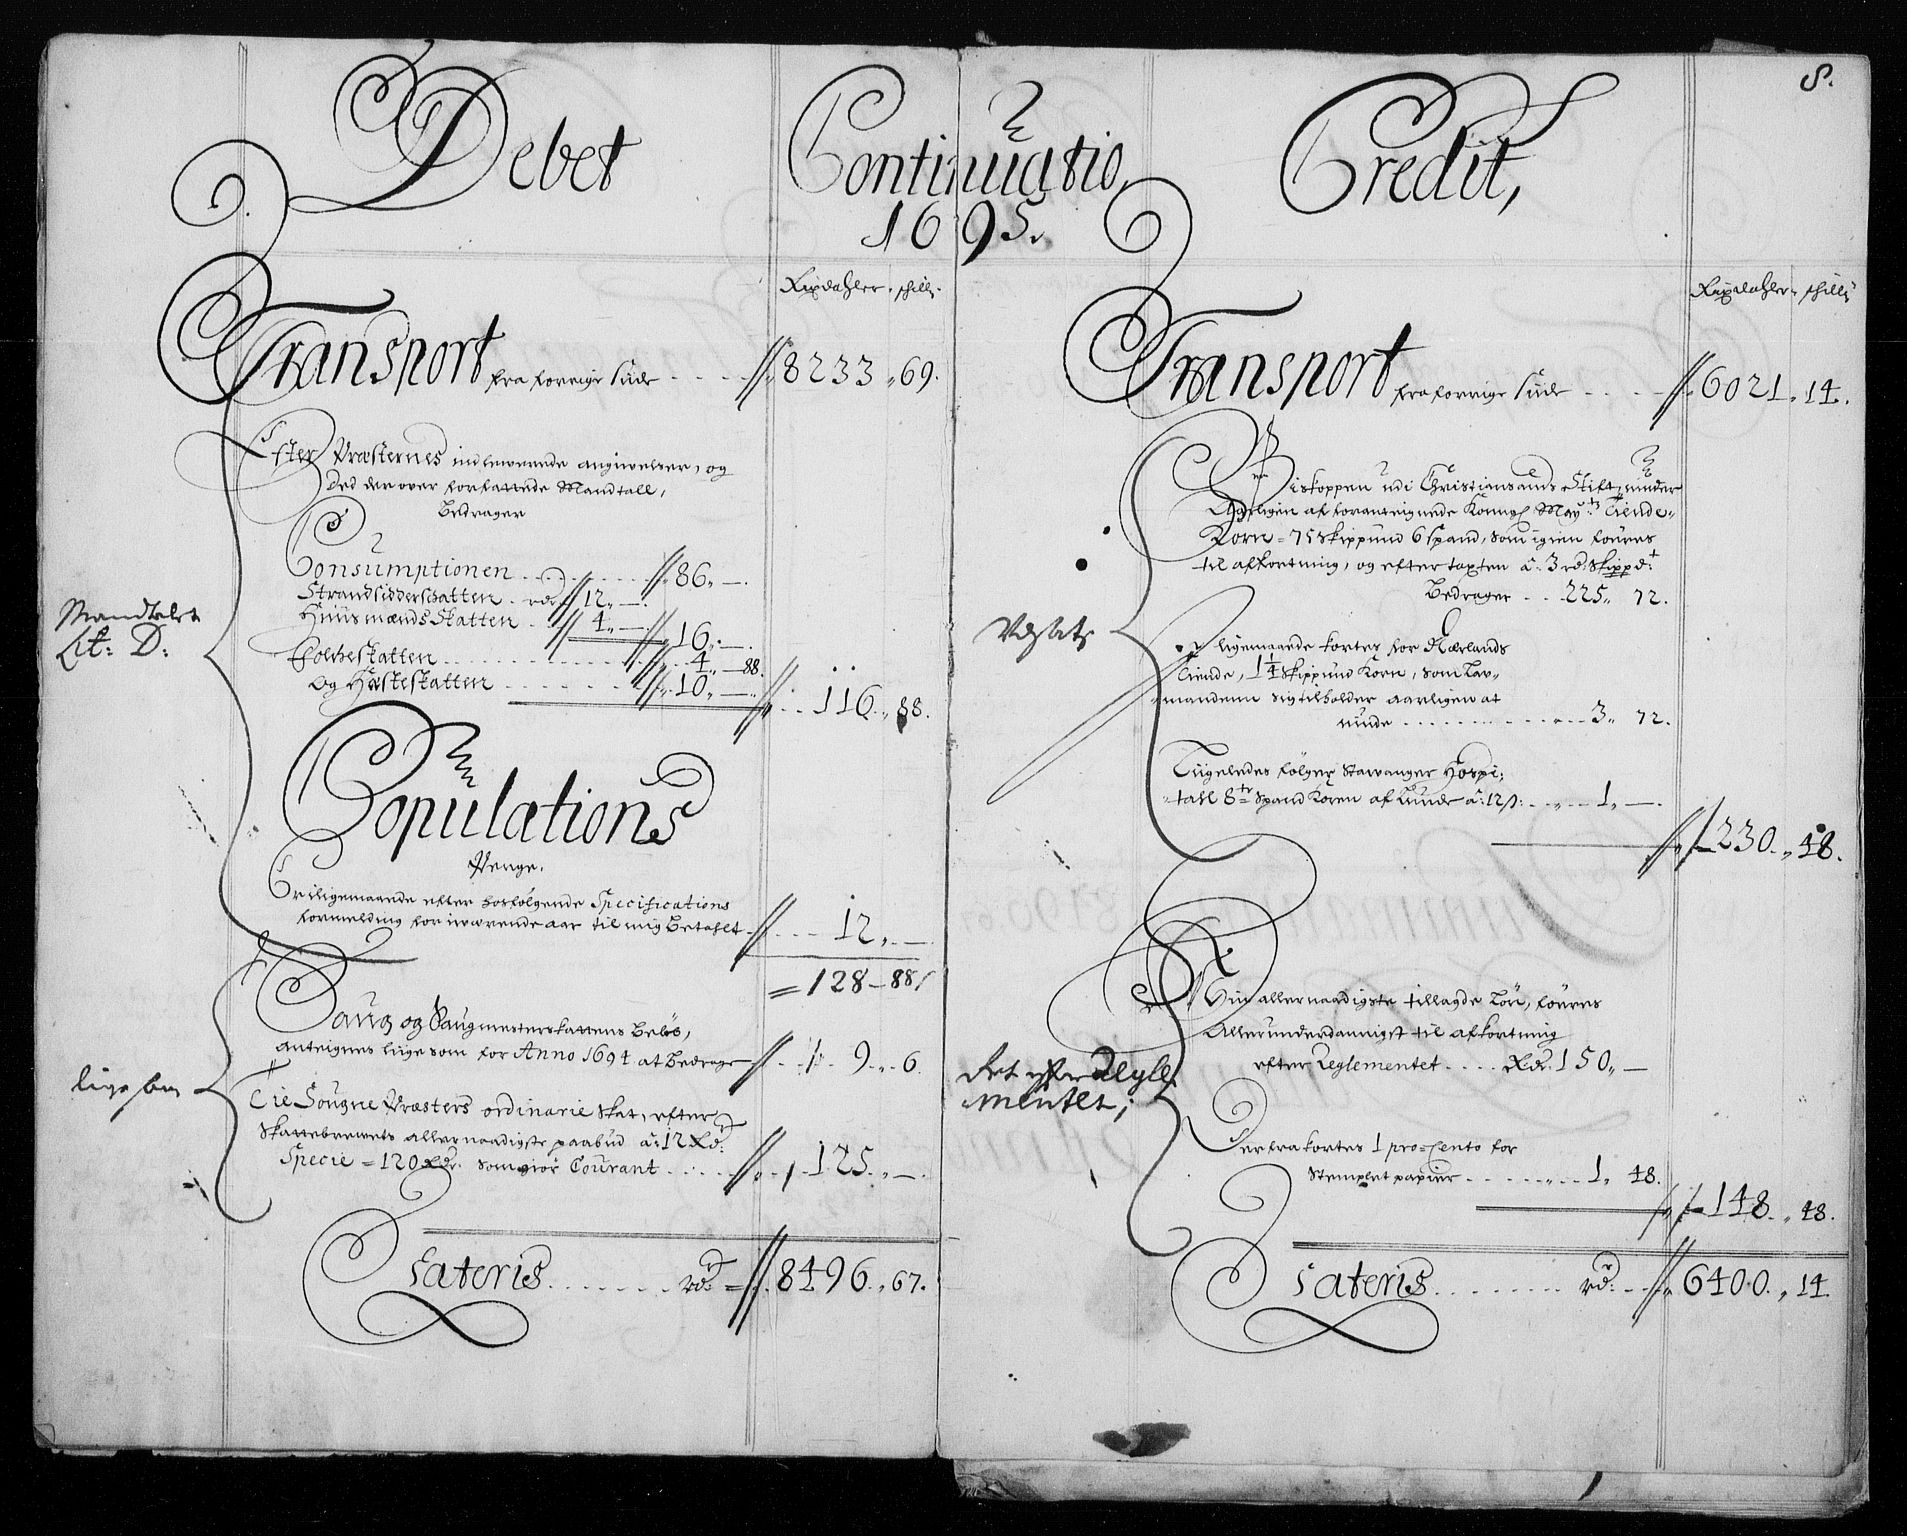 8.
Debet Continuatio, Credit,
1695.
Rixdahler. schill.
Transport fra forrige side 8233 „ 69.
Efter Præsternes indleverede angivelser, og
Ded der over forfattede Mandtall,
Bedrager
Consumptionen 86 „ —.
Strandsidderskatten 12 „ —.
HuusmændsSkatten 4 „ —. 16 „ —.
Folcheskatten 4 „ — 88.
og Hæsteskatten 10 „ — 116 „ 88.
Mandtalet
Lit: D:
Copulations
Penge.
Er iligemaade efter hosfølgende Specifications
formelding for inværende aar til mig Betahlt 12 „ —
128 — 88
Saug og Saugmesterskattens Beløb,
anteignes liige som for Anno 1694 at Bedrage 9 „ 6.
ligesaa
Tie Sougne Præsters ordinarie Skat, efter
Skattebrevets allernaadigste paabud à 12 Rd.
Specie = 120 Rdr. som giør Courant 125 „ —
Lateris rdr. 8496 „ 67.
Rixdahler. schill.
Transport fra forrige side 6021 „ 14.
Biskoppen udi Christiansands Stift, nyder
Aarligen af foranteignede Kongl. May:ts Tiende-
Korn = 75 Skippund 6 spand, som igien føures
til afkortning, og efter taxten à 3 rd. Skippd:
Bedrager 225 „ 72.
Udsatz
ligemaade kortes for Nærlands
Tiende, 1 1/4 Skippund Korn, som Lav-
mandenn sig tilholder aarligen at
nÿde 3 „ 72.
Liigeledes følger Stawanger Hospi:
tahl 8te Spand Koren af Lunde à: 12 s: 1 „ —.
230 „ 48.
Min allernaadigste tillagde Løn, føures
Allerunderdanigst til afkortning
efter Reglementet Rdr. 150 „ —
det efter Regle-
mentet;
Derfra kortes 1 pro-Cento for
Stemplet papiir 1 „ 48.
148 „ 48.
Lateris rdr. 6400 „ 14.